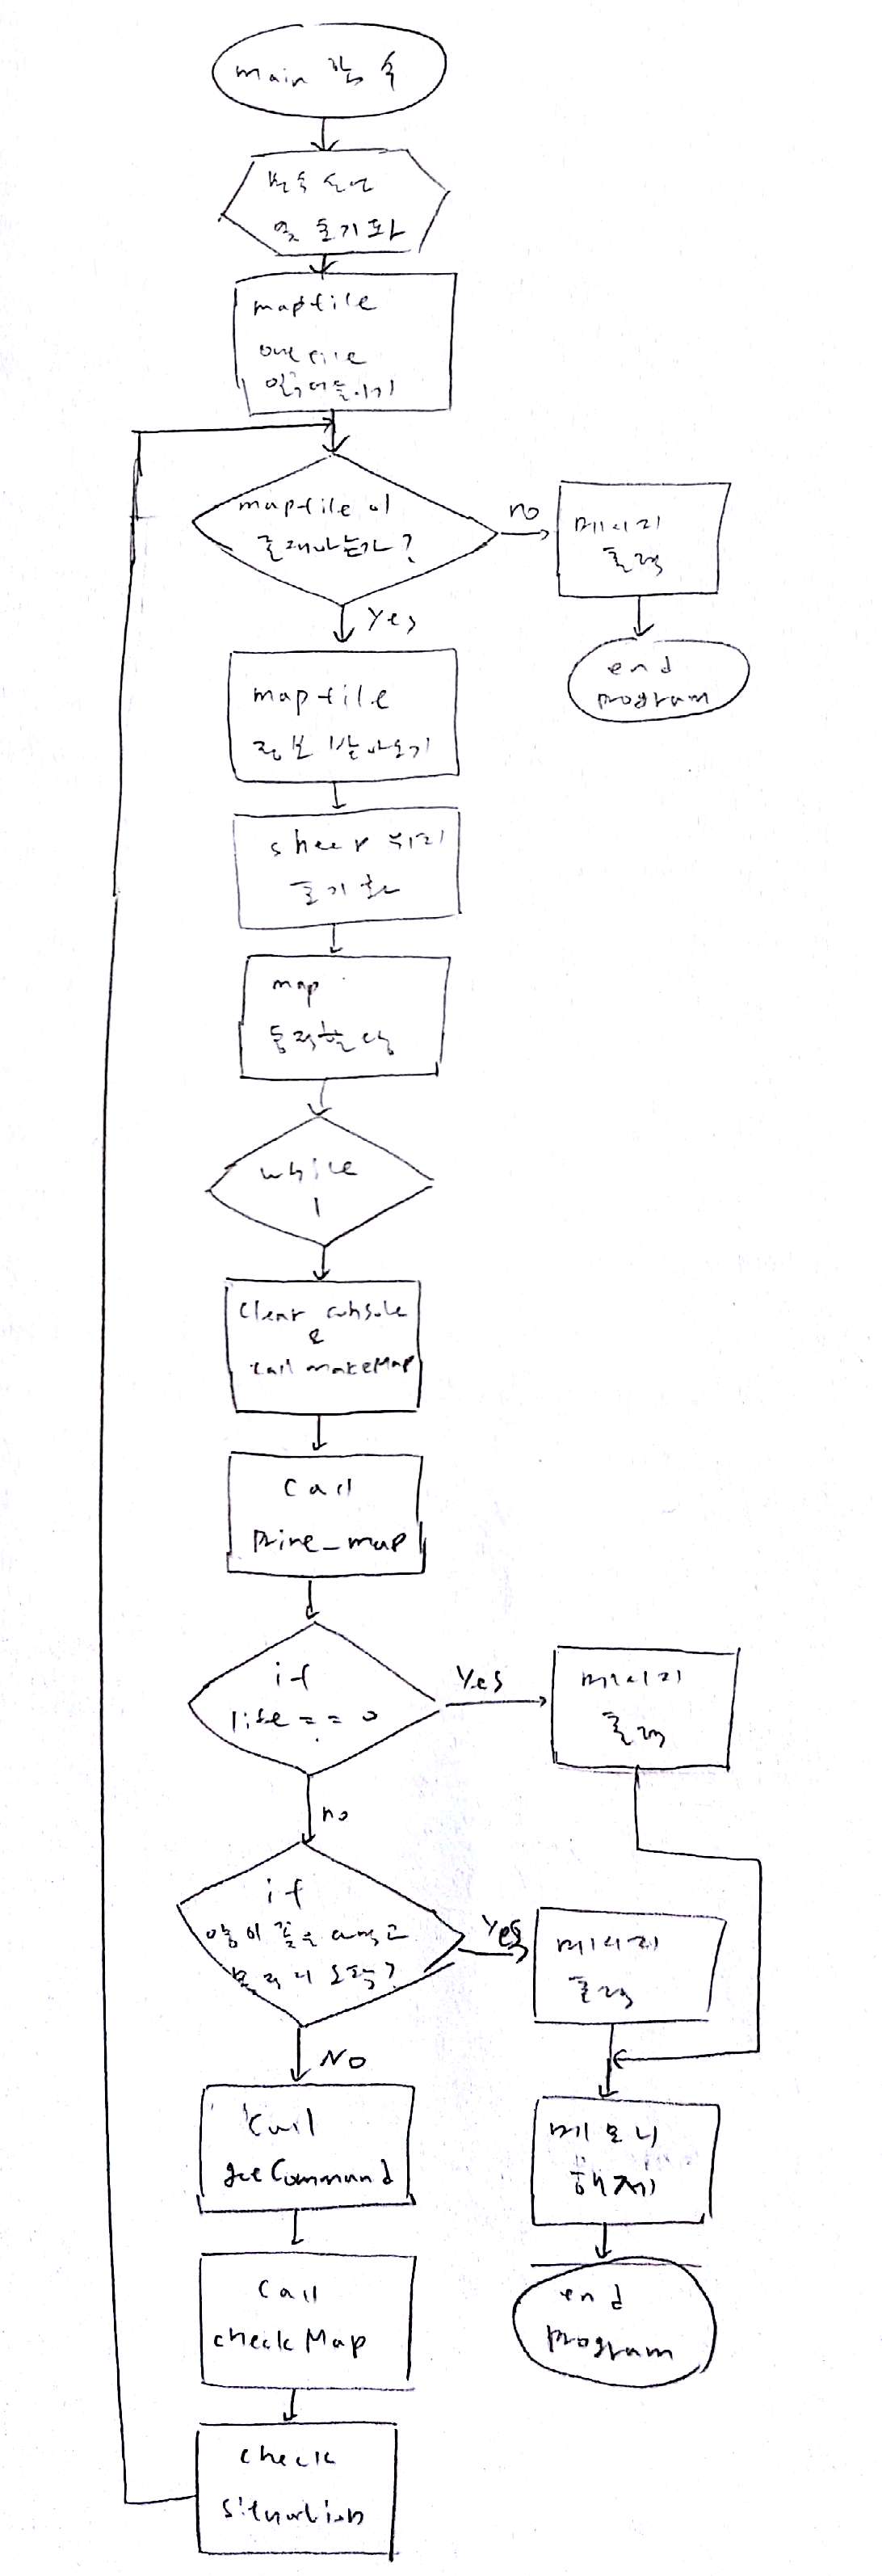 main 함수
변수 선언
및 초기화
mapfile
읽어들이기
mapfile이
존재하는가?
no
메시지
출력
end
program
Yes
mapfile
정보 받아오기
sheep 위치
초기화
map
동적할당
while
1
Clear console
&
call makeMap
Call
Print_map
if
life == 0
Yes
메시지
출력
no
if
양이 꽃을 다먹고
목적지 도착?
Yes
메시지
출력
No
Call
getCommand
메모리
해제
Call
checkMap
end
program
check
Situation